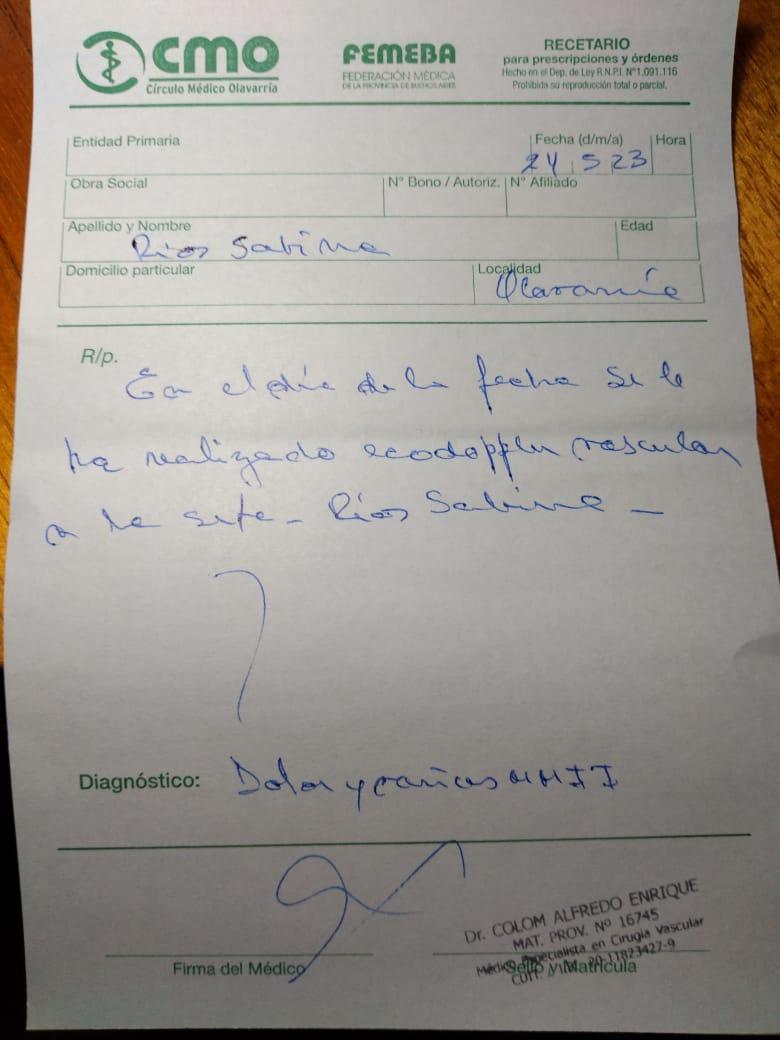 CMO
Círculo Médico Olavarría
FEMEBA
FEDERACIÓN MÉDICA
DE LA PROVINCIA DE BUENOS AIRES
RECETARIO
para prescripciones y órdenes
Hecho en el Dep. de Ley R.N.P.I. N°1.091.116
Prohibida su reproducción total o parcial.
Entidad Primaria
Fecha (d/m/a) Hora
24 5 23
Obra Social N° Bono / Autoriz. N° Afiliado
Apellido y Nombre Edad
Rios Sabina
Domicilio particular Localidad
Olavarría
R/p.
En el día de la fecha se le
ha realizado ecodoppler vascular
a la - Rios Sabina -
Diagnóstico: Dolor y MMII
Dr. COLOM ALFREDO ENRIQUE
MAT. PROV. Nº 16745
Médico Especialista en Cirugía Vascular
CUIT. 20-11823427-9
Firma del Médico Sello y Matrícula